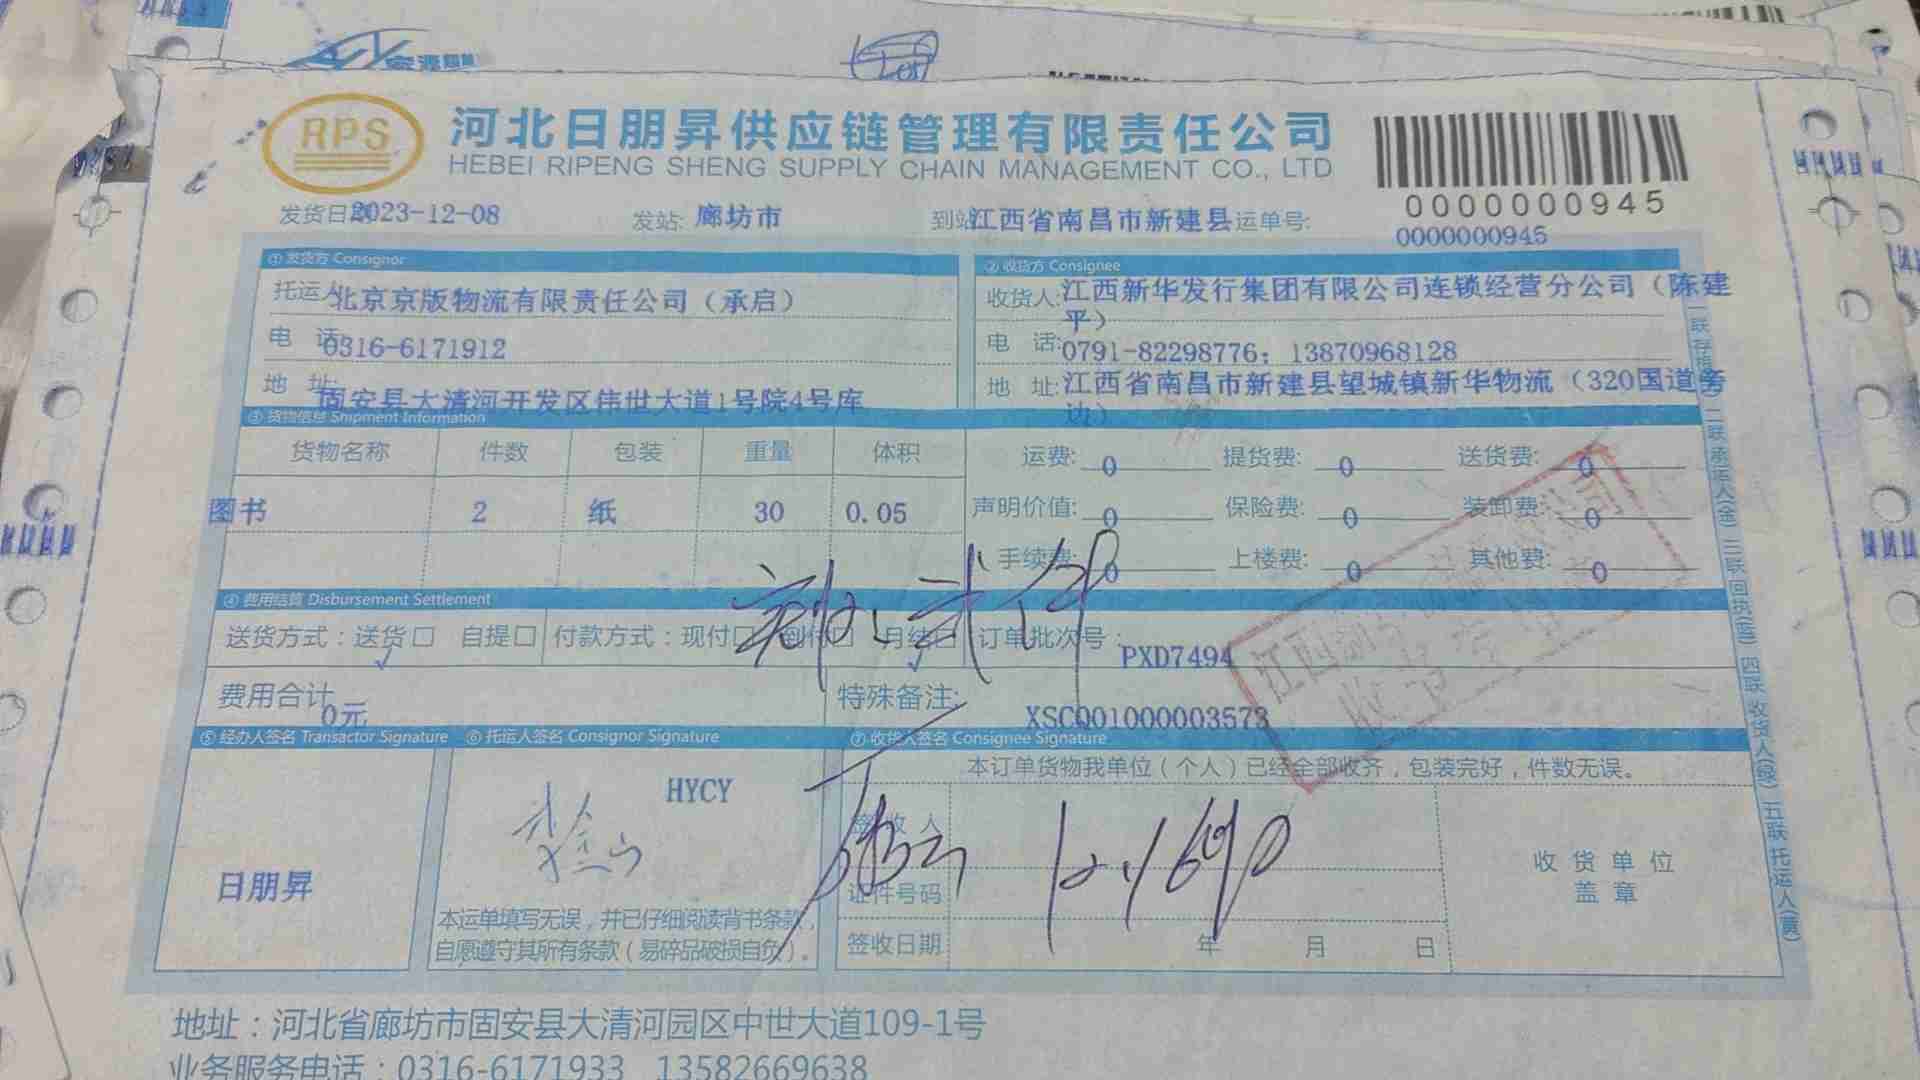 RPS
河北日朋昇供应链管理有限责任公司
HEBEI RIPENG SHENG SUPPLY CHAIN MANAGEMENT CO., LTD
0000000945
发货日期 2023-12-08 发站: 廊坊市 到站 江西省南昌市新建县 运单号: 0000000945
① 发货方 Consignor
托运人 北京京版物流有限责任公司（承启）
电 话: 0316-6171912
地 址: 固安县大清河开发区伟世大道1号院4号库
② 收货方 Consignee
收货人: 江西新华发行集团有限公司连锁经营分公司（陈建
平）
电 话: 0791-82298776; 13870968128
地 址: 江西省南昌市新建县望城镇新华物流（320国道旁
边）
③ 货物信息 Shipment Information
货物名称 件数 包装 重量 体积
图书 2 纸 30 0.05
运费: 0 提货费: 0 送货费: 0
声明价值: 0 保险费: 0 装卸费: 0
手续费: 0 上楼费: 0 其他费: 0
④ 费用结算 Disbursement Settlement
送货方式：送货□ 自提□ 付款方式：现付□ 到付□ 月结□ 订单批次号：PXD7494
费用合计 0元 特殊备注: XSC001000003573
⑤ 经办人签名 Transactor Signature ⑥ 托运人签名 Consignor Signature ⑦ 收货人签名 Consignee Signature
日朋昇
HYCY
本运单填写无误，并已仔细阅读背书条款，
自愿遵守其所有条款（易碎品破损自负）。
本订单货物我单位（个人）已经全部收齐，包装完好，件数无误。
签收人
证件号码
签收日期 年 月 日
收货单位
盖章
二联承运人(金) 三联回执(蓝) 四联收货人(绿) 五联托运人(黄)
地址：河北省廊坊市固安县大清河园区中世大道109-1号
业务服务电话：0316-6171933 13582669638